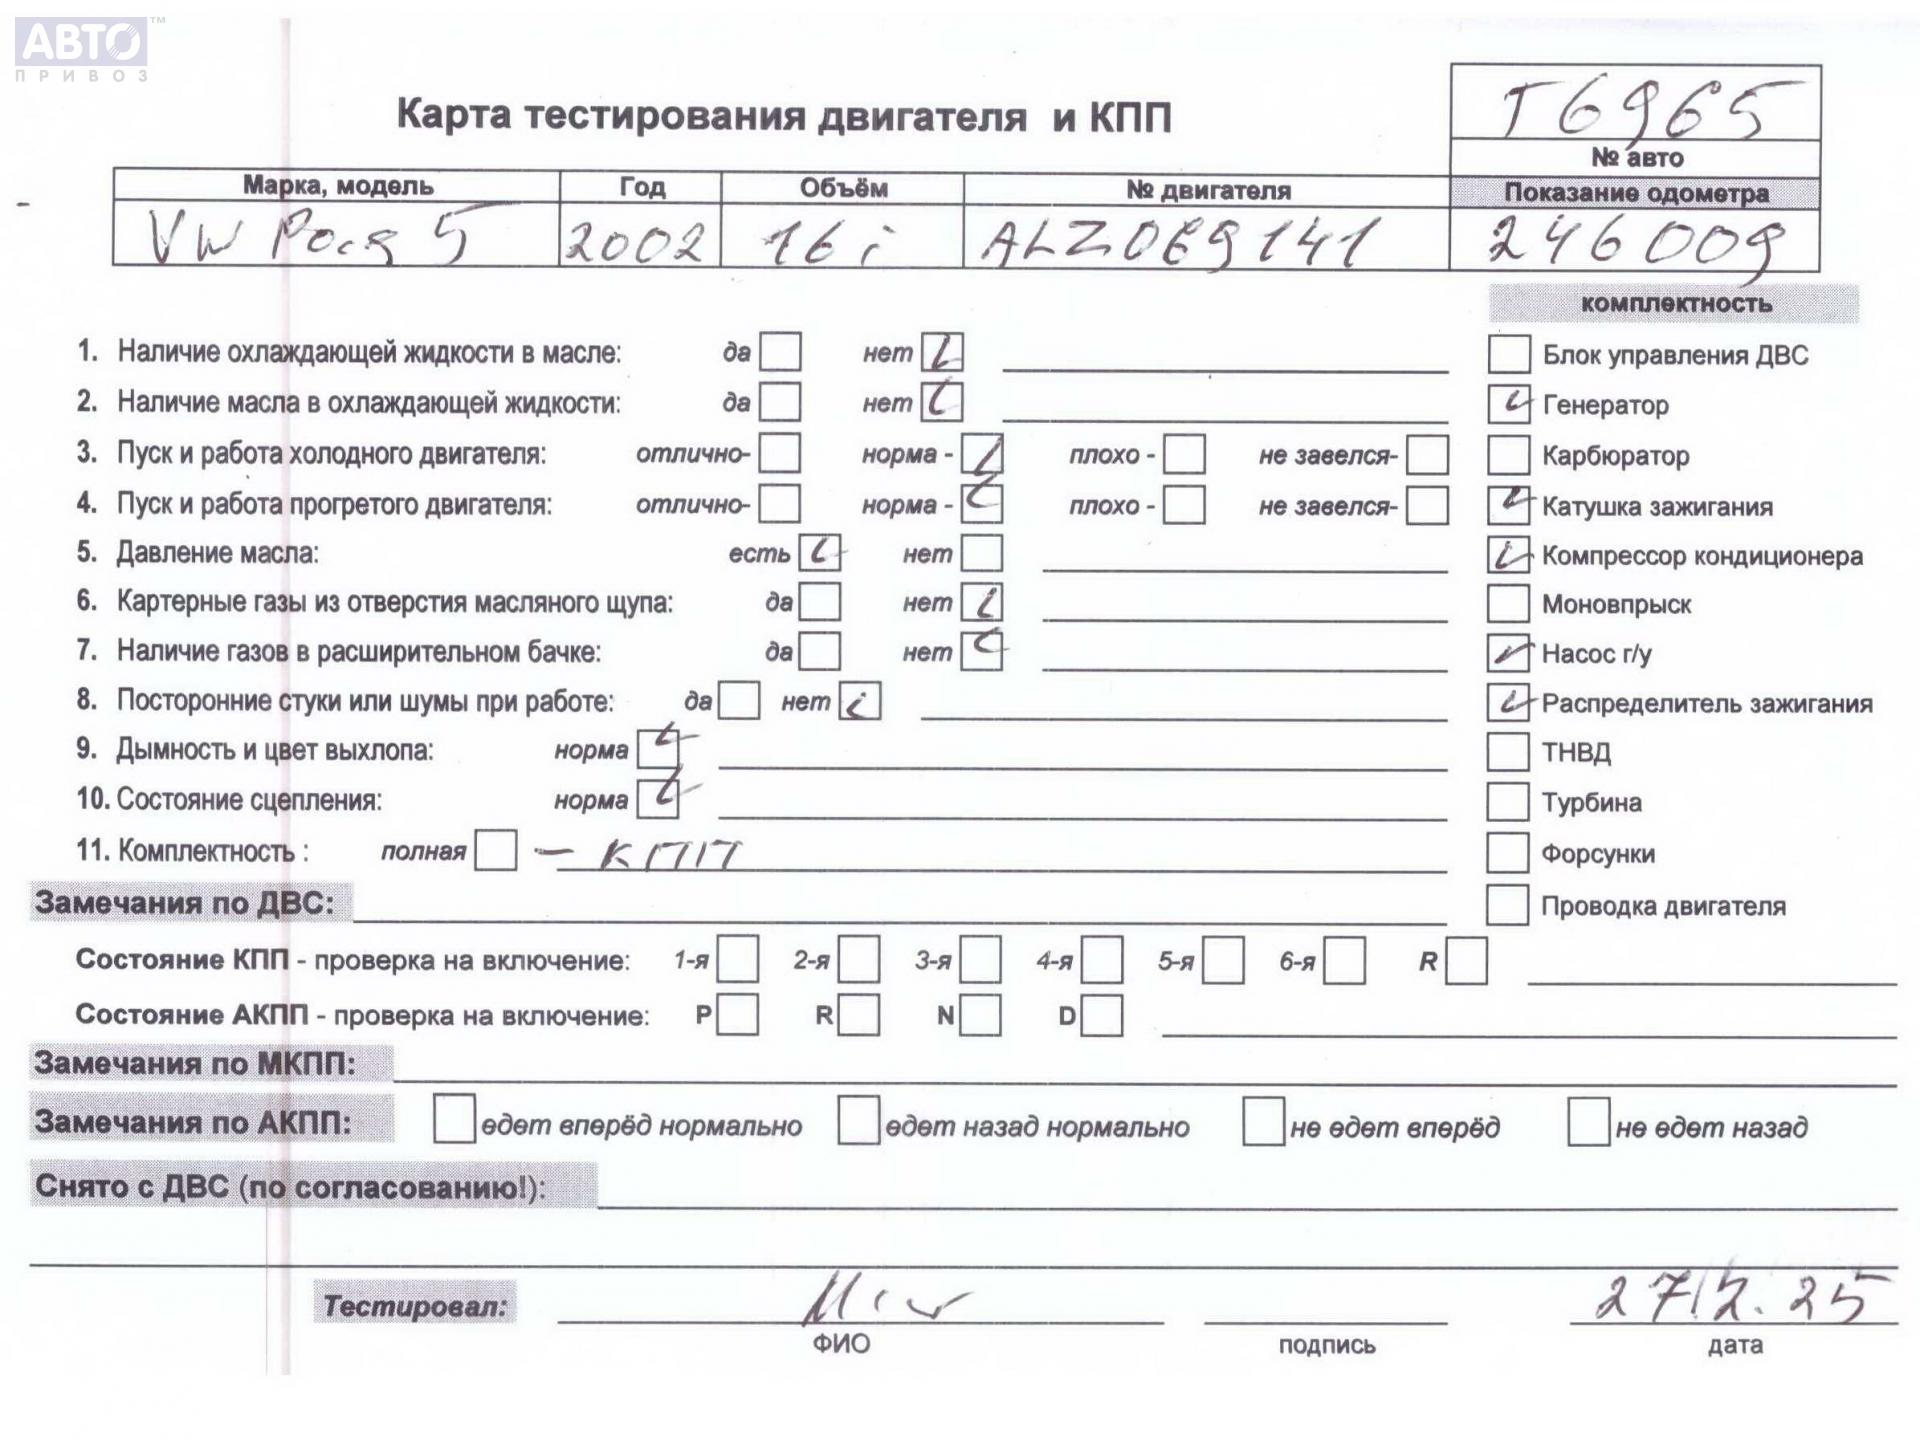 АВТО™
ПРИВОЗ
T6965
Карта тестирования двигателя и КПП
№ авто
Марка, модель Год Объём № двигателя Показание одометра
VW 5 2002 16 i ALZ069141 246009
комплектность
1. Наличие охлаждающей жидкости в масле: да нет Блок управления ДВС
2. Наличие масла в охлаждающей жидкости: да нет Генератор
3. Пуск и работа холодного двигателя: отлично- норма - плохо - не завелся- Карбюратор
4. Пуск и работа прогретого двигателя: отлично- норма - плохо - не завелся- Катушка зажигания
5. Давление масла: есть нет Компрессор кондиционера
6. Картерные газы из отверстия масляного щупа: да нет Моновпрыск
7. Наличие газов в расширительном бачке: да нет Насос г/у
8. Посторонние стуки или шумы при работе: да нет Распределитель зажигания
9. Дымность и цвет выхлопа: норма ТНВД
10. Состояние сцепления: норма Турбина
11. Комплектность : полная – КПП Форсунки
Замечания по ДВС: Проводка двигателя
Состояние КПП - проверка на включение: 1-я 2-я 3-я 4-я 5-я 6-я R
Состояние АКПП - проверка на включение: P R N D
Замечания по МКПП:
Замечания по АКПП: едет вперёд нормально едет назад нормально не едет вперёд не едет назад
Снято с ДВС (по согласованию!):
Тестировал: 25
ФИО подпись дата